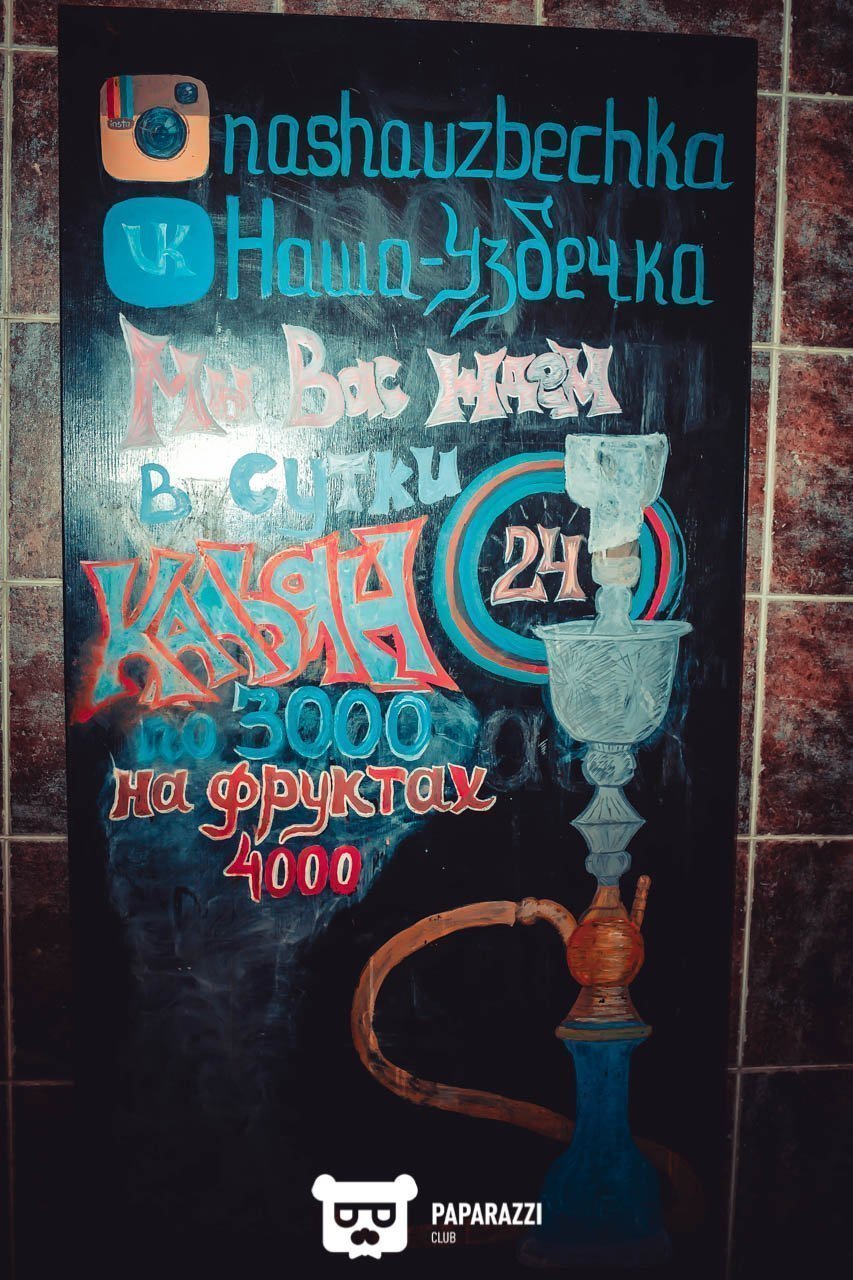 insta
nashauzbechka
VK
Наша-Узбечка
Мы Вас ждём
в сутки
24
Кальян
по 3000
на фруктах
4000
PAPARAZZI
CLUB